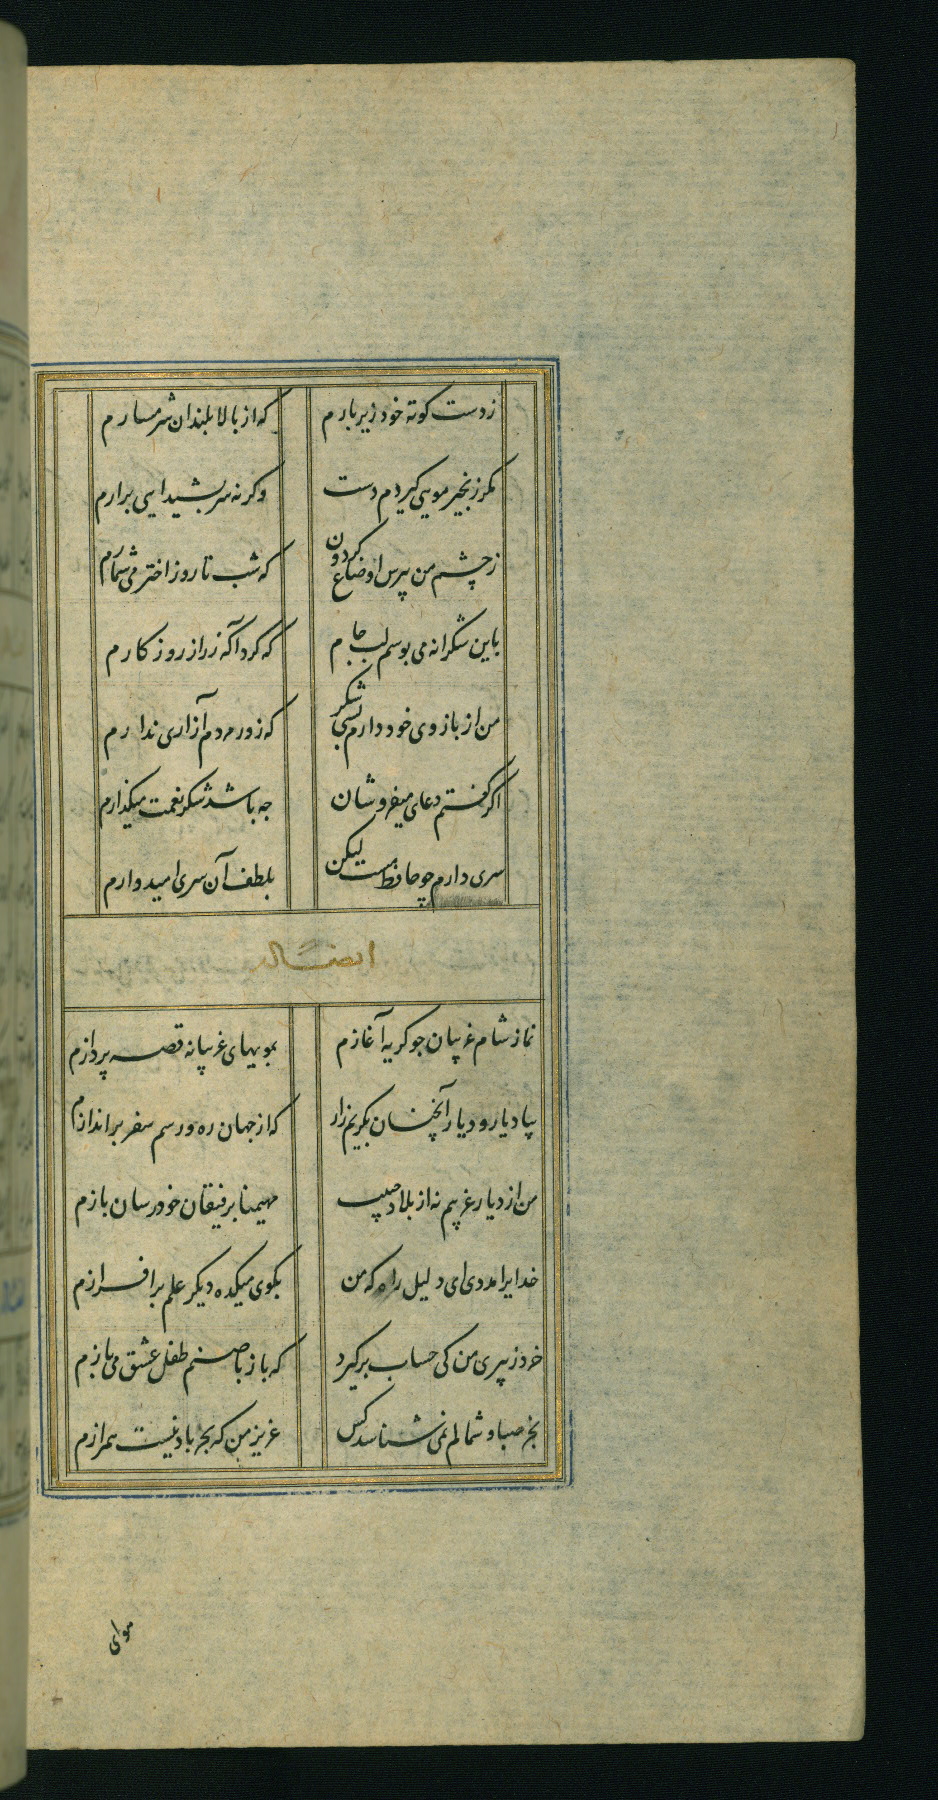 زدست کوته خود زیر بارم که از بالابلندان شرمسارم
مکر زنجیر مویی کیردم دست وکرنه سر بشیدایی برارم
زچشم من بپرس اوضاع کردون که شب تا روز اختر می شمارم
باین شکرانه می بوسم لب جام که کرد آکه ز راز روزکارم
من از بازوی خود دارم بسی شکر که زور مردم آزاری ندارم
اکر کفتم دعای میفروشان چه باشد شکر نعمت میکذارم
سری دارم چو حافظ مست لیکن بلطف آن سری امیدوارم
ایضاله
نماز شام غریبان چو کریه آغازم بمویهای غریبانه قصه پردازم
بیاد یار و دیار آنچنان بکریم زار که از جهان ره و رسم سفر براندازم
من از دیار غریبم نه از بلاد حبیب مهیمنا برفیقان خود رسان بازم
خدایرا مددی ای دلیل راه که من بکوی میکده دیکر علم برافرازم
خرد ز پیری من کی حساب برکیرد که باز با صنم طفل عشق می بازم
بجز صبا و شمالم نمی شناسد کس عزیز من که بجز باد نیست همرازم
هوای